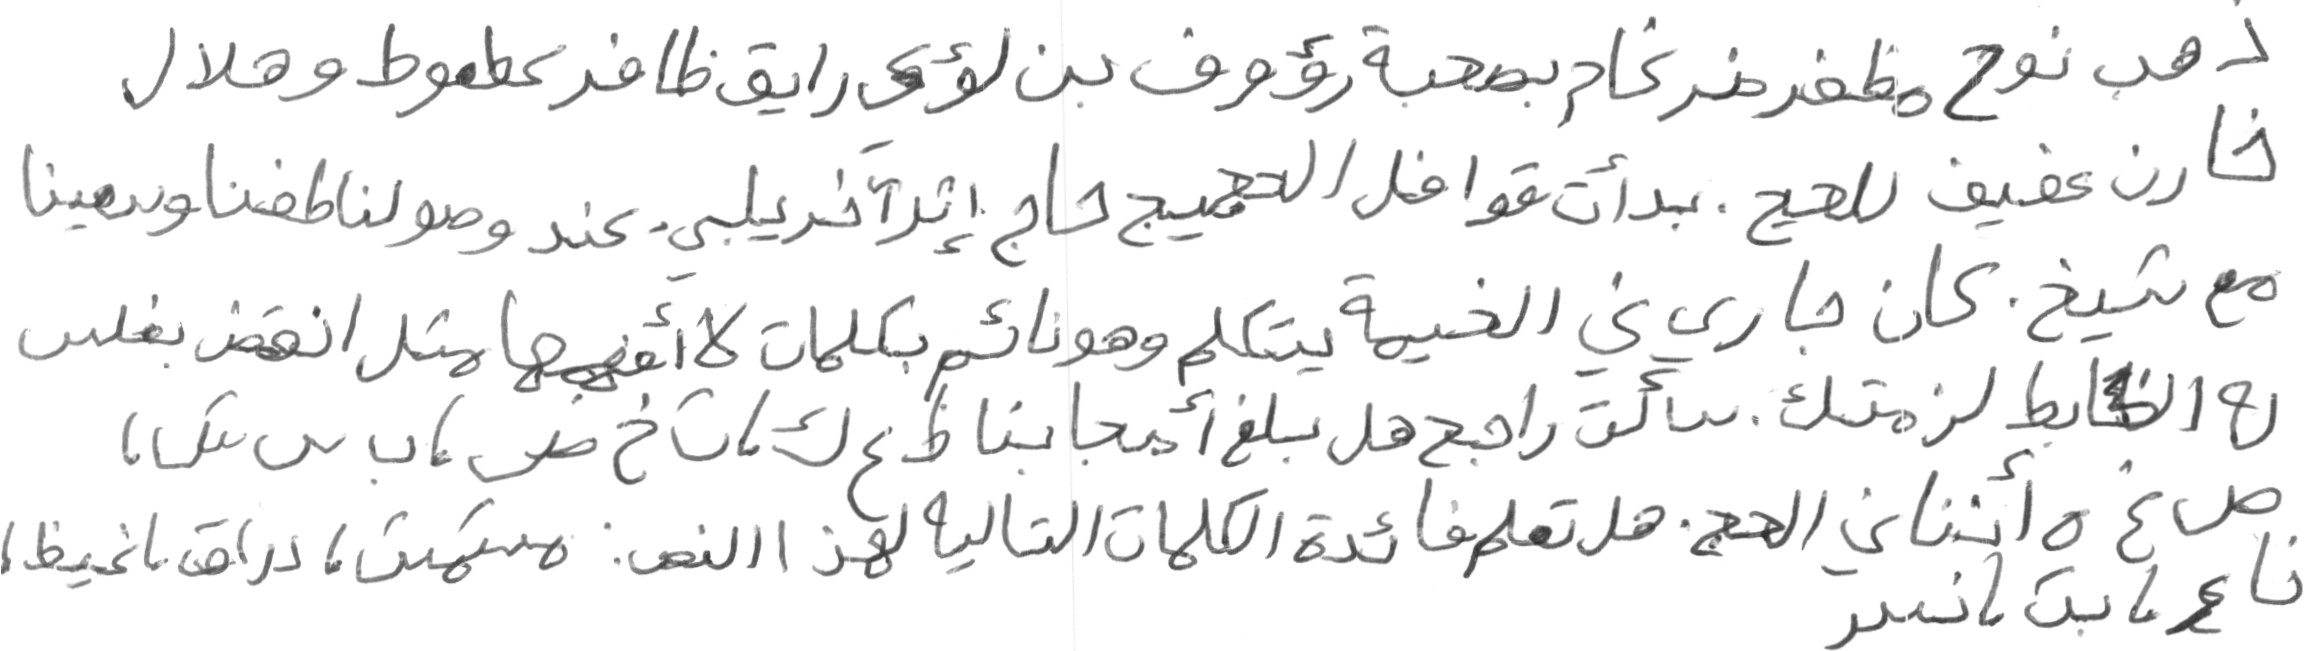 ذهب نوح مظفر ضرغام بصحبة رؤوف بن لؤي رايق ظافر عطعوط وهلال
خازن عفيف للحج. بدأت قوافل الحجيج حاج إثر آخر يلبي. عند وصولنا طفنا وسعينا
مع شيخ. كان جاري في الخيمة يتكلم وهو نائم بكلمات لا أفهمها مثل انقض بغلس
له الضابط لزمتك. سألت راجح هل بلغ أصحابنا ظ ع ك، ث خ ض، ب س ش،
ص غ ه أننا في الحج. هل تعلم فائدة الكلمات التالية لهذا النص: مستمت، دراق، غيظ،
ناع، بت، نسر